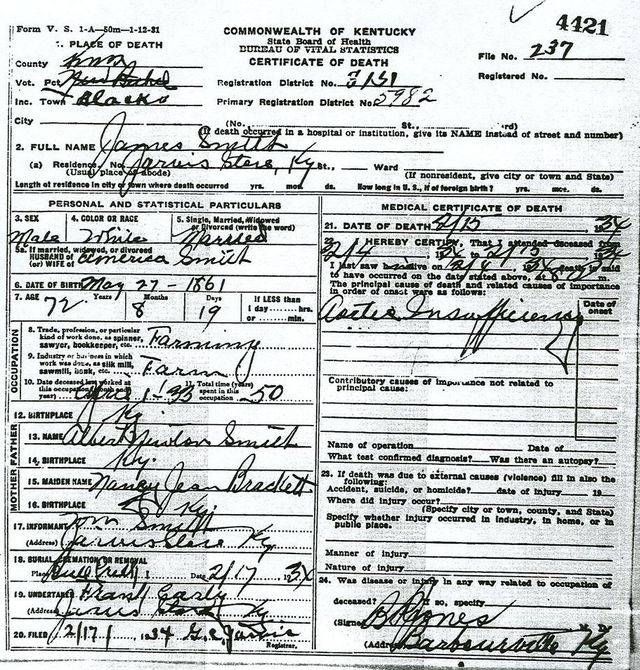 Form V. S. 1-A—50m—1-12-31
4421
COMMONWEALTH OF KENTUCKY
State Board of Health
BUREAU OF VITAL STATISTICS
CERTIFICATE OF DEATH
1. PLACE OF DEATH
County Knox
Vot. Pct.
Inc. Town
File No. 237
Registered No.
Registration District No.
Primary Registration District No. 5982
City (No. St., rd)
(If death occurred in a hospital or institution, give its NAME instead of street and number)
2. FULL NAME James Smith
(a) Residence, No. Jarvis Store, Ky St., Ward
(Usual place of abode) (If nonresident, give city or town and State)
Length of residence in city or town where death occurred yrs. mos. ds. How long in U. S., if of foreign birth? yrs. mos. ds.
PERSONAL AND STATISTICAL PARTICULARS
3. SEX 4. COLOR OR RACE 5. Single, Married, Widowed or Divorced (write the word)
Male White Married
5a. If married, widowed, or divorced
HUSBAND of
(or) WIFE of America Smith
6. DATE OF BIRTH May 27 - 1861
7. AGE 72 Years 8 Months 19 Days If LESS than 1 day hrs. or min.
OCCUPATION
8. Trade, profession, or particular kind of work done, as spinner, sawyer, bookkeeper, etc. Farming
9. Industry or business in which work was done, as silk mill, sawmill, bank, etc. Farm
10. Date deceased last worked at this occupation (month and year) Total time (years) spent in this occupation 50
12. BIRTHPLACE Ky
FATHER
13. NAME Albert Newton Smith
14. BIRTHPLACE Ky.
MOTHER
15. MAIDEN NAME Nancy Jean Brackett
16. BIRTHPLACE Ky
17. INFORMANT Smith
(Address) Jarvis Store Ky
18. BURIAL, CREMATION OR REMOVAL
Place Date 2/17 1934
19. UNDERTAKER Frank Early
(Address) Jarvis Store Ky
20. FILED 2/17, 1934 Registrar.
MEDICAL CERTIFICATE OF DEATH
21. DATE OF DEATH 2/15 1934
22. I HEREBY CERTIFY, That I attended deceased from
2/4 1934 to 2/15 1934
I last saw h alive on 2/8 1934 death is said
to have occurred on the date stated above, at
The principal cause of death and related causes of importance in order of onset were as follows:
Date of onset
Aortic Insufficiency
Contributory causes of importance not related to principal cause:
Name of operation Date of
What test confirmed diagnosis? Was there an autopsy?
23. If death was due to external causes (violence) fill in also the following:
Accident, suicide, or homicide? date of injury 19
Where did injury occur?
(Specify city or town, county, and State)
Specify whether injury occurred in industry, in home, or in public place.
Manner of injury
Nature of injury
24. Was disease or injury in any way related to occupation of
deceased? If so, specify
(Signed) Jones M D
(Address) Barbourville Ky